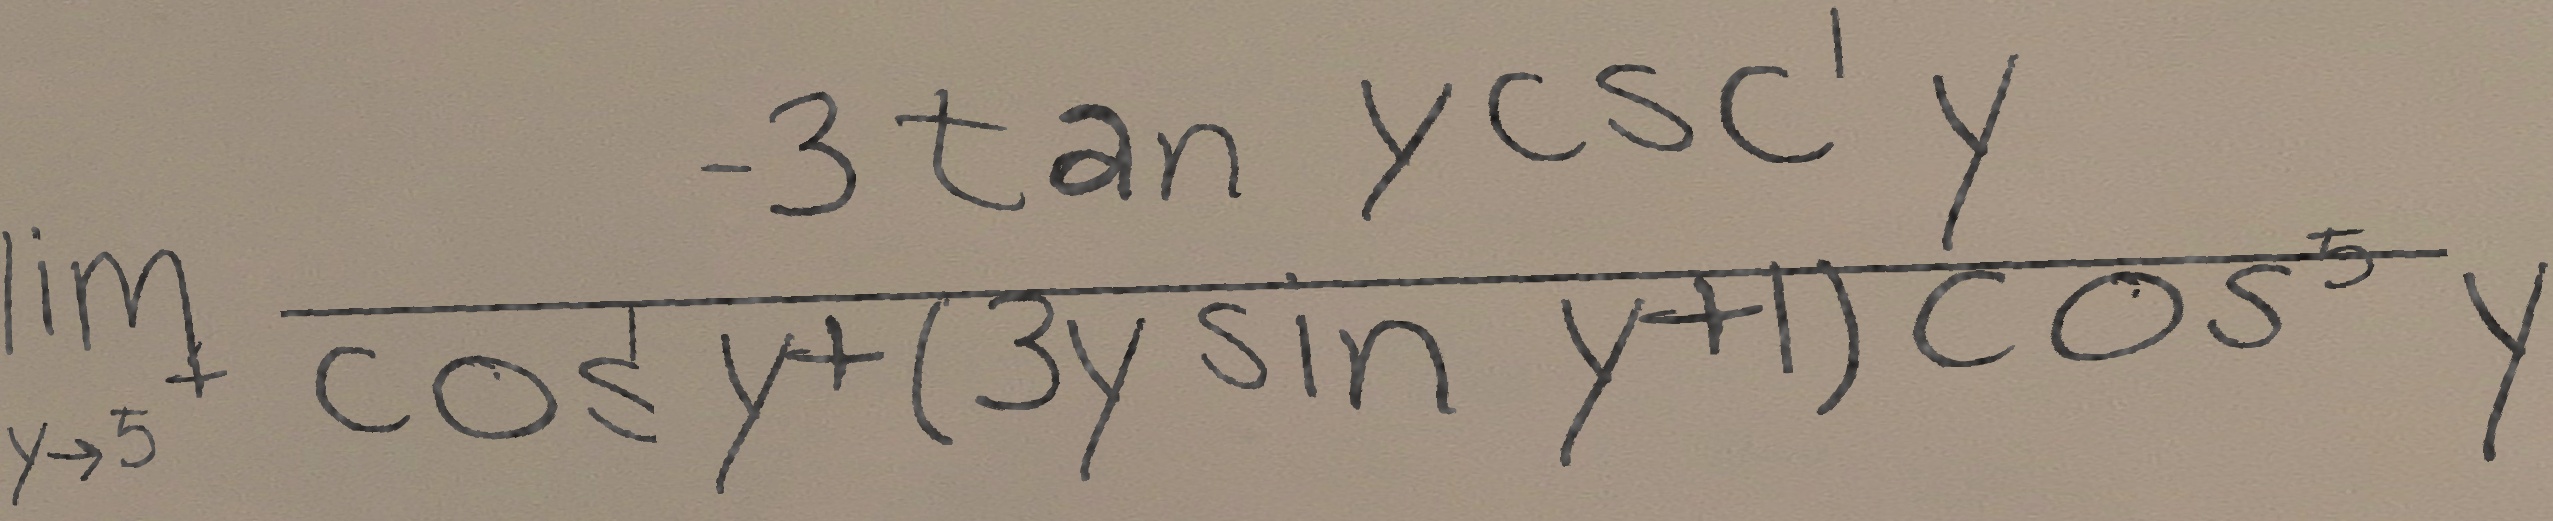 \lim_{y \to 5^+} \frac{-3 \tan y \csc^1 y}{\cos^1 y + (3y \sin y + 1) \cos^5 y}